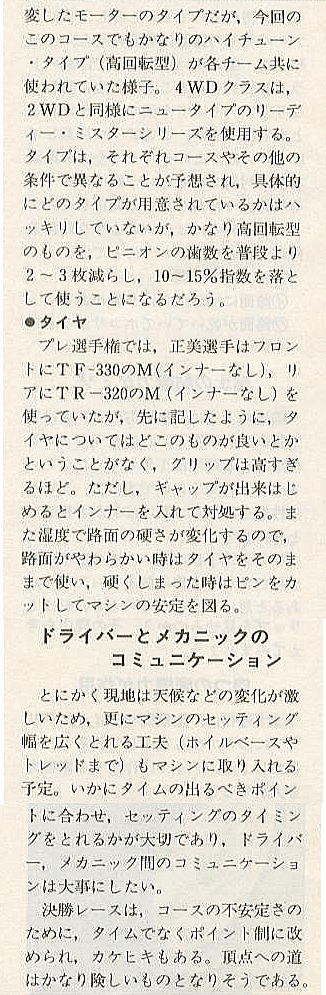 変したモーターのタイプだが，今回の
このコースでもかなりのハイチューン
・タイプ（高回転型）が各チーム共に
使われていた様子。４WDクラスは，
２WDと同様にニュータイプのリーデ
ィー・ミスターシリーズを使用する。
タイプは，それぞれコースやその他の
条件で異なることが予想され，具体的
にどのタイプが用意されているかはハ
ッキリしていないが，かなり高回転型
のものを，ピニオンの歯数を普段より
２～３枚減らし，10～15％指数を落と
して使うことになるだろう。
●タイヤ
プレ選手権では，正美選手はフロン
トにＴＦ-330のM（インナーなし），リ
アにＴＲ－320のM（インナーなし）を
使っていたが，先に記したように，タ
イヤについてはどこのものが良いとか
ということがなく，グリップは高すぎ
るほど。ただし，ギャップが出来はじ
めるとインナーを入れて対処する。ま
た湿度で路面の硬さが変化するので，
路面がやわらかい時はタイヤをそのま
まで使い，硬くしまった時はピンをカ
ットしてマシンの安定を図る。
ドライバーとメカニックの
コミュニケーション
とにかく現地は天候などの変化が激
しいため，更にマシンのセッティング
幅を広くとれる工夫（ホイルベースや
トレッドまで）もマシンに取り入れる
予定。いかにタイムの出るべきポイン
トに合わせ，セッティングのタイミン
グをとれるかが大切であり，ドライバ
ー，メカニック間のコミュニケーショ
ンは大事にしたい。
決勝レースは，コースの不安定さの
ために，タイムでなくポイント制に改
められ，カケヒキもある。頂点への道
はかなり険しいものとなりそうである。